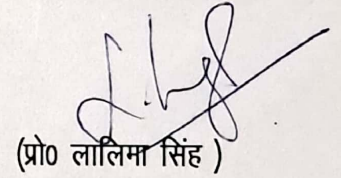 (प्रो० लालिमा सिंह )